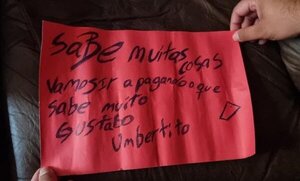 SaBE muitas cosas
Vamosir a pagando o que
sabe muito
GUStabo
Umbertito